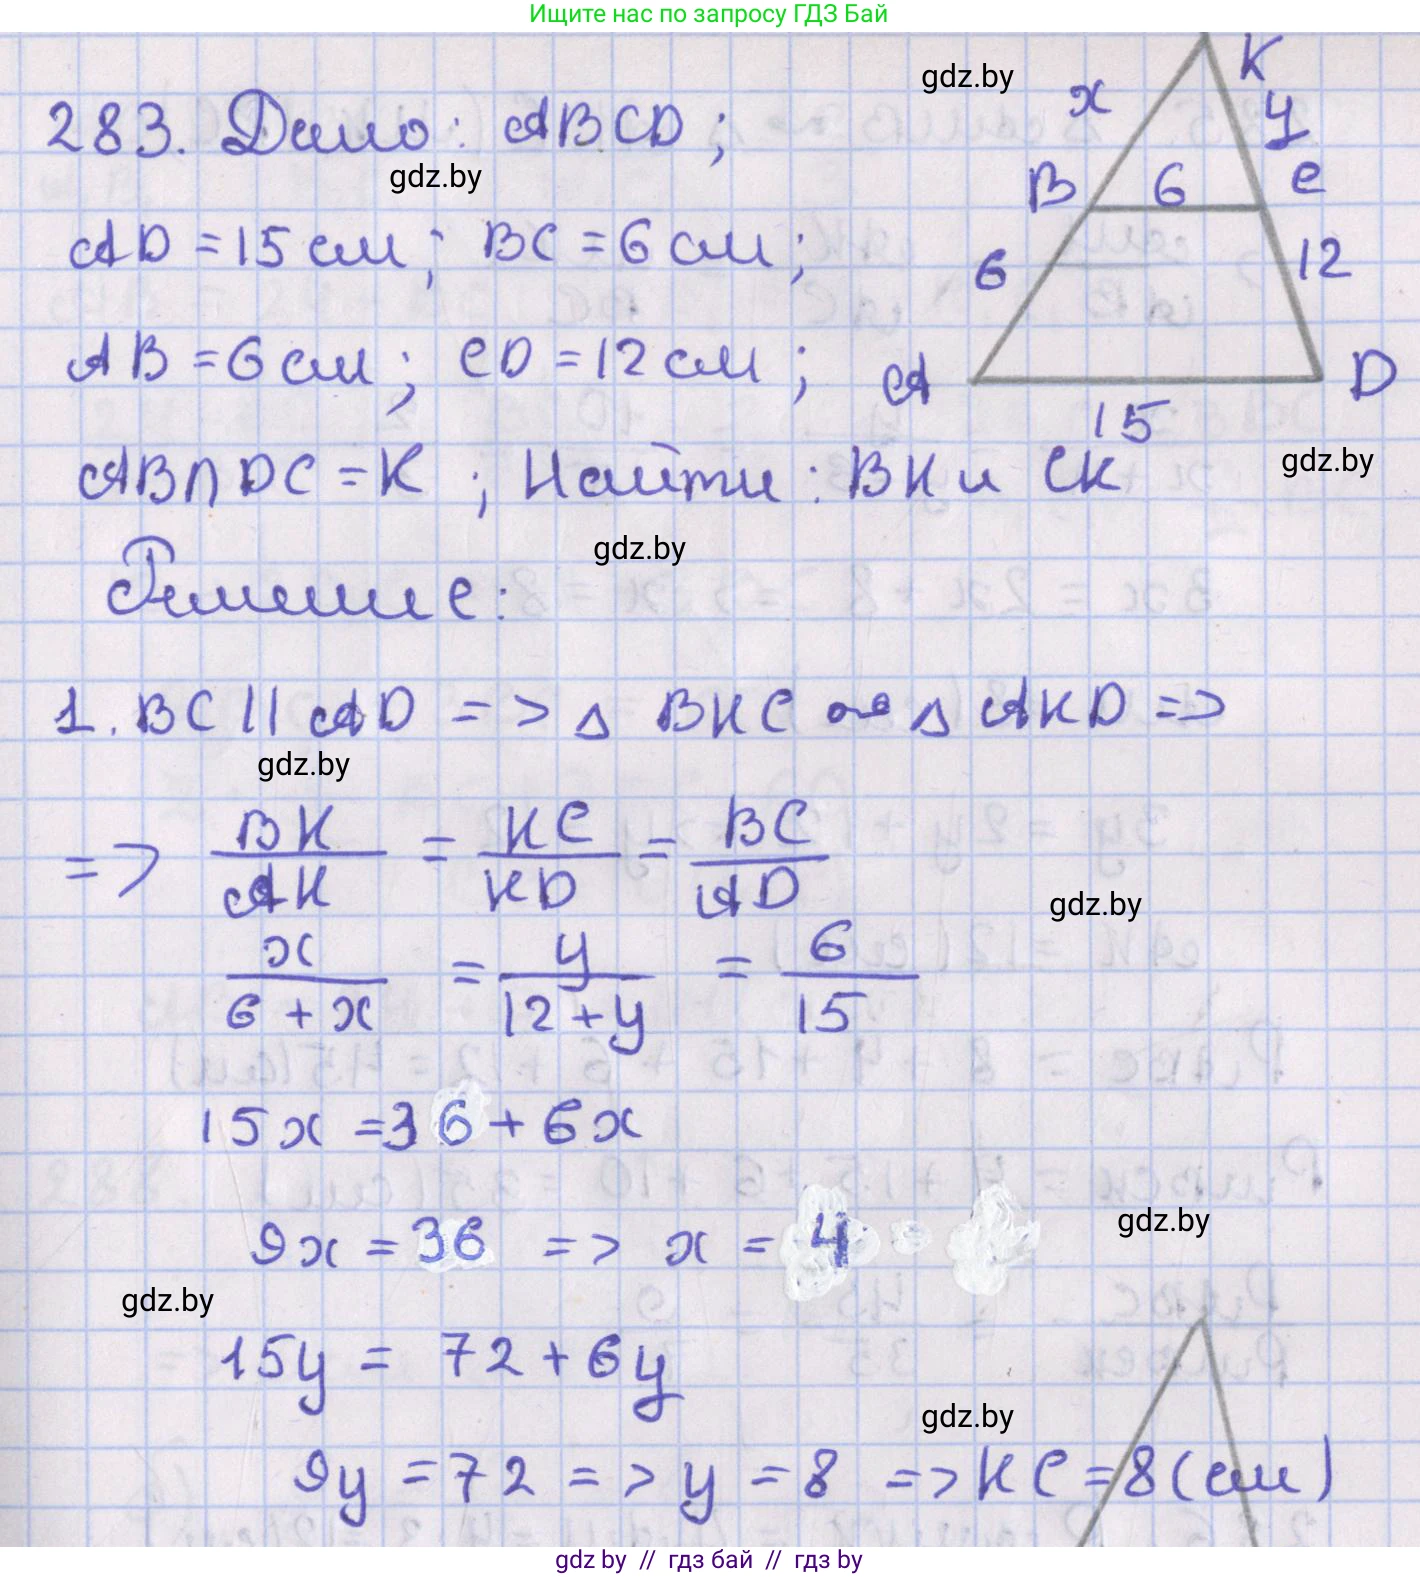 Ищите нас по запросу ГДЗ Бай
283. Дано: ABCD;
gdz.by
gdz.by
AD = 15 см; BC = 6 см;
AB = 6 см; CD = 12 см;
K
x
y
B 6 C
6 12
A D
15
gdz.by
AB∩DC = K; Найти: BK и CK
gdz.by
Решение:
1. BC || AD => △ BKC ∾ △ AKD =>
gdz.by
=> BK/AK = KC/KD = BC/AD
gdz.by
x/(6 + x) = y/(12 + y) = 6/15
15x = 36 + 6x
gdz.by
9x = 36 => x = 4
gdz.by
15y = 72 + 6y
gdz.by
9y = 72 => y = 8 => KC = 8 (см)
gdz.by // гдз бай // гдз by